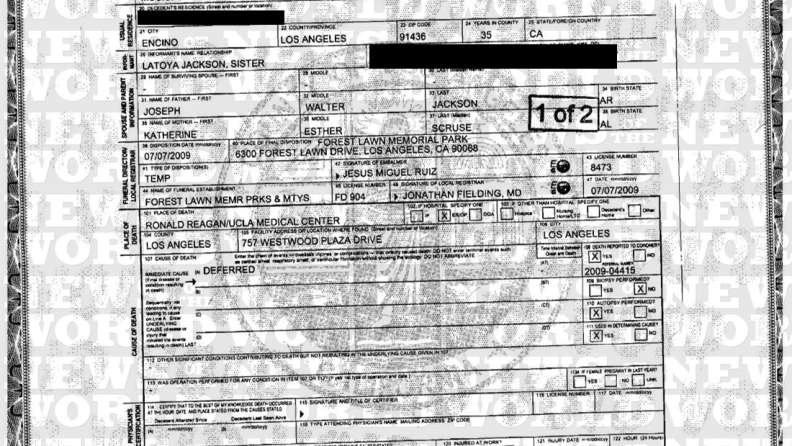 20 DECEDENT'S RESIDENCE (Street and number or location)
USUAL RESIDENCE
21 CITY
22 COUNTY/PROVINCE
23 ZIP CODE
24 YEARS IN COUNTY
25 STATE/FOREIGN COUNTRY
ENCINO
LOS ANGELES
91436
35
CA
26 INFORMANT'S NAME, RELATIONSHIP
LATOYA JACKSON, SISTER
28 NAME OF SURVIVING SPOUSE — FIRST
29 MIDDLE
-
SPOUSE AND PARENT INFORMATION
31 NAME OF FATHER — FIRST
32 MIDDLE
33 LAST
34 BIRTH STATE
JOSEPH
WALTER
JACKSON
AR
1 of 2
35 NAME OF MOTHER — FIRST
36 MIDDLE
37 LAST (Maiden)
38 BIRTH STATE
KATHERINE
ESTHER
SCRUSE
AL
FUNERAL DIRECTOR/ LOCAL REGISTRAR
39 DISPOSITION DATE mm/dd/ccyy
40 PLACE OF FINAL DISPOSITION
FOREST LAWN MEMORIAL PARK
07/07/2009
6300 FOREST LAWN DRIVE, LOS ANGELES, CA 90068
41 TYPE OF DISPOSITION(S)
42 SIGNATURE OF EMBALMER
43 LICENSE NUMBER
TEMP
JESUS MIGUEL RUIZ
8473
44 NAME OF FUNERAL ESTABLISHMENT
45 LICENSE NUMBER
46 SIGNATURE OF LOCAL REGISTRAR
47 DATE mm/dd/ccyy
FOREST LAWN MEMR PRKS & MTYS
FD 904
JONATHAN FIELDING, MD
07/07/2009
PLACE OF DEATH
101 PLACE OF DEATH
102 IF HOSPITAL, SPECIFY ONE
103 IF OTHER THAN HOSPITAL, SPECIFY ONE
RONALD REAGAN/UCLA MEDICAL CENTER
IP X ER/OP DOA Hospice Nursing Home/LTC Decedent's Home Other
104 COUNTY
105 FACILITY ADDRESS OR LOCATION WHERE FOUND (Street and number or location)
106 CITY
LOS ANGELES
757 WESTWOOD PLAZA DRIVE
LOS ANGELES
CAUSE OF DEATH
107 CAUSE OF DEATH
Time Interval Between Onset and Death
108 DEATH REPORTED TO CORONER?
X YES NO
IMMEDIATE CAUSE (Final disease or condition resulting in death)
(A) DEFERRED
(AT)
REFERRAL NUMBER
2009-04415
(B)
109 BIOPSY PERFORMED?
YES X NO
Sequentially list conditions, if any, leading to cause on Line A. Enter UNDERLYING CAUSE (disease or injury that initiated the events resulting in death) LAST
(C)
(CT)
110 AUTOPSY PERFORMED?
X YES NO
(D)
(DT)
111 USED IN DETERMINING CAUSE?
X YES NO
112 OTHER SIGNIFICANT CONDITIONS CONTRIBUTING TO DEATH BUT NOT RESULTING IN THE UNDERLYING CAUSE GIVEN IN 107
113 WAS OPERATION PERFORMED FOR ANY CONDITION IN ITEM 107 OR 112? (If yes, list type of operation and date.)
113A IF FEMALE, PREGNANT IN LAST YEAR?
YES NO UNK
PHYSICIAN'S CERTIFICATION
114 I CERTIFY THAT TO THE BEST OF MY KNOWLEDGE DEATH OCCURRED AT THE HOUR, DATE, AND PLACE STATED FROM THE CAUSES STATED
115 SIGNATURE AND TITLE OF CERTIFIER
116 LICENSE NUMBER
117 DATE mm/dd/ccyy
Decedent Attended Since
Decedent Last Seen Alive
(A) mm/dd/ccyy
(B) mm/dd/ccyy
118 TYPE ATTENDING PHYSICIAN'S NAME, MAILING ADDRESS, ZIP CODE
120 INJURED AT WORK?
121 INJURY DATE mm/dd/ccyy
122 HOUR (24 Hours)
NEWS OF THE WORLD